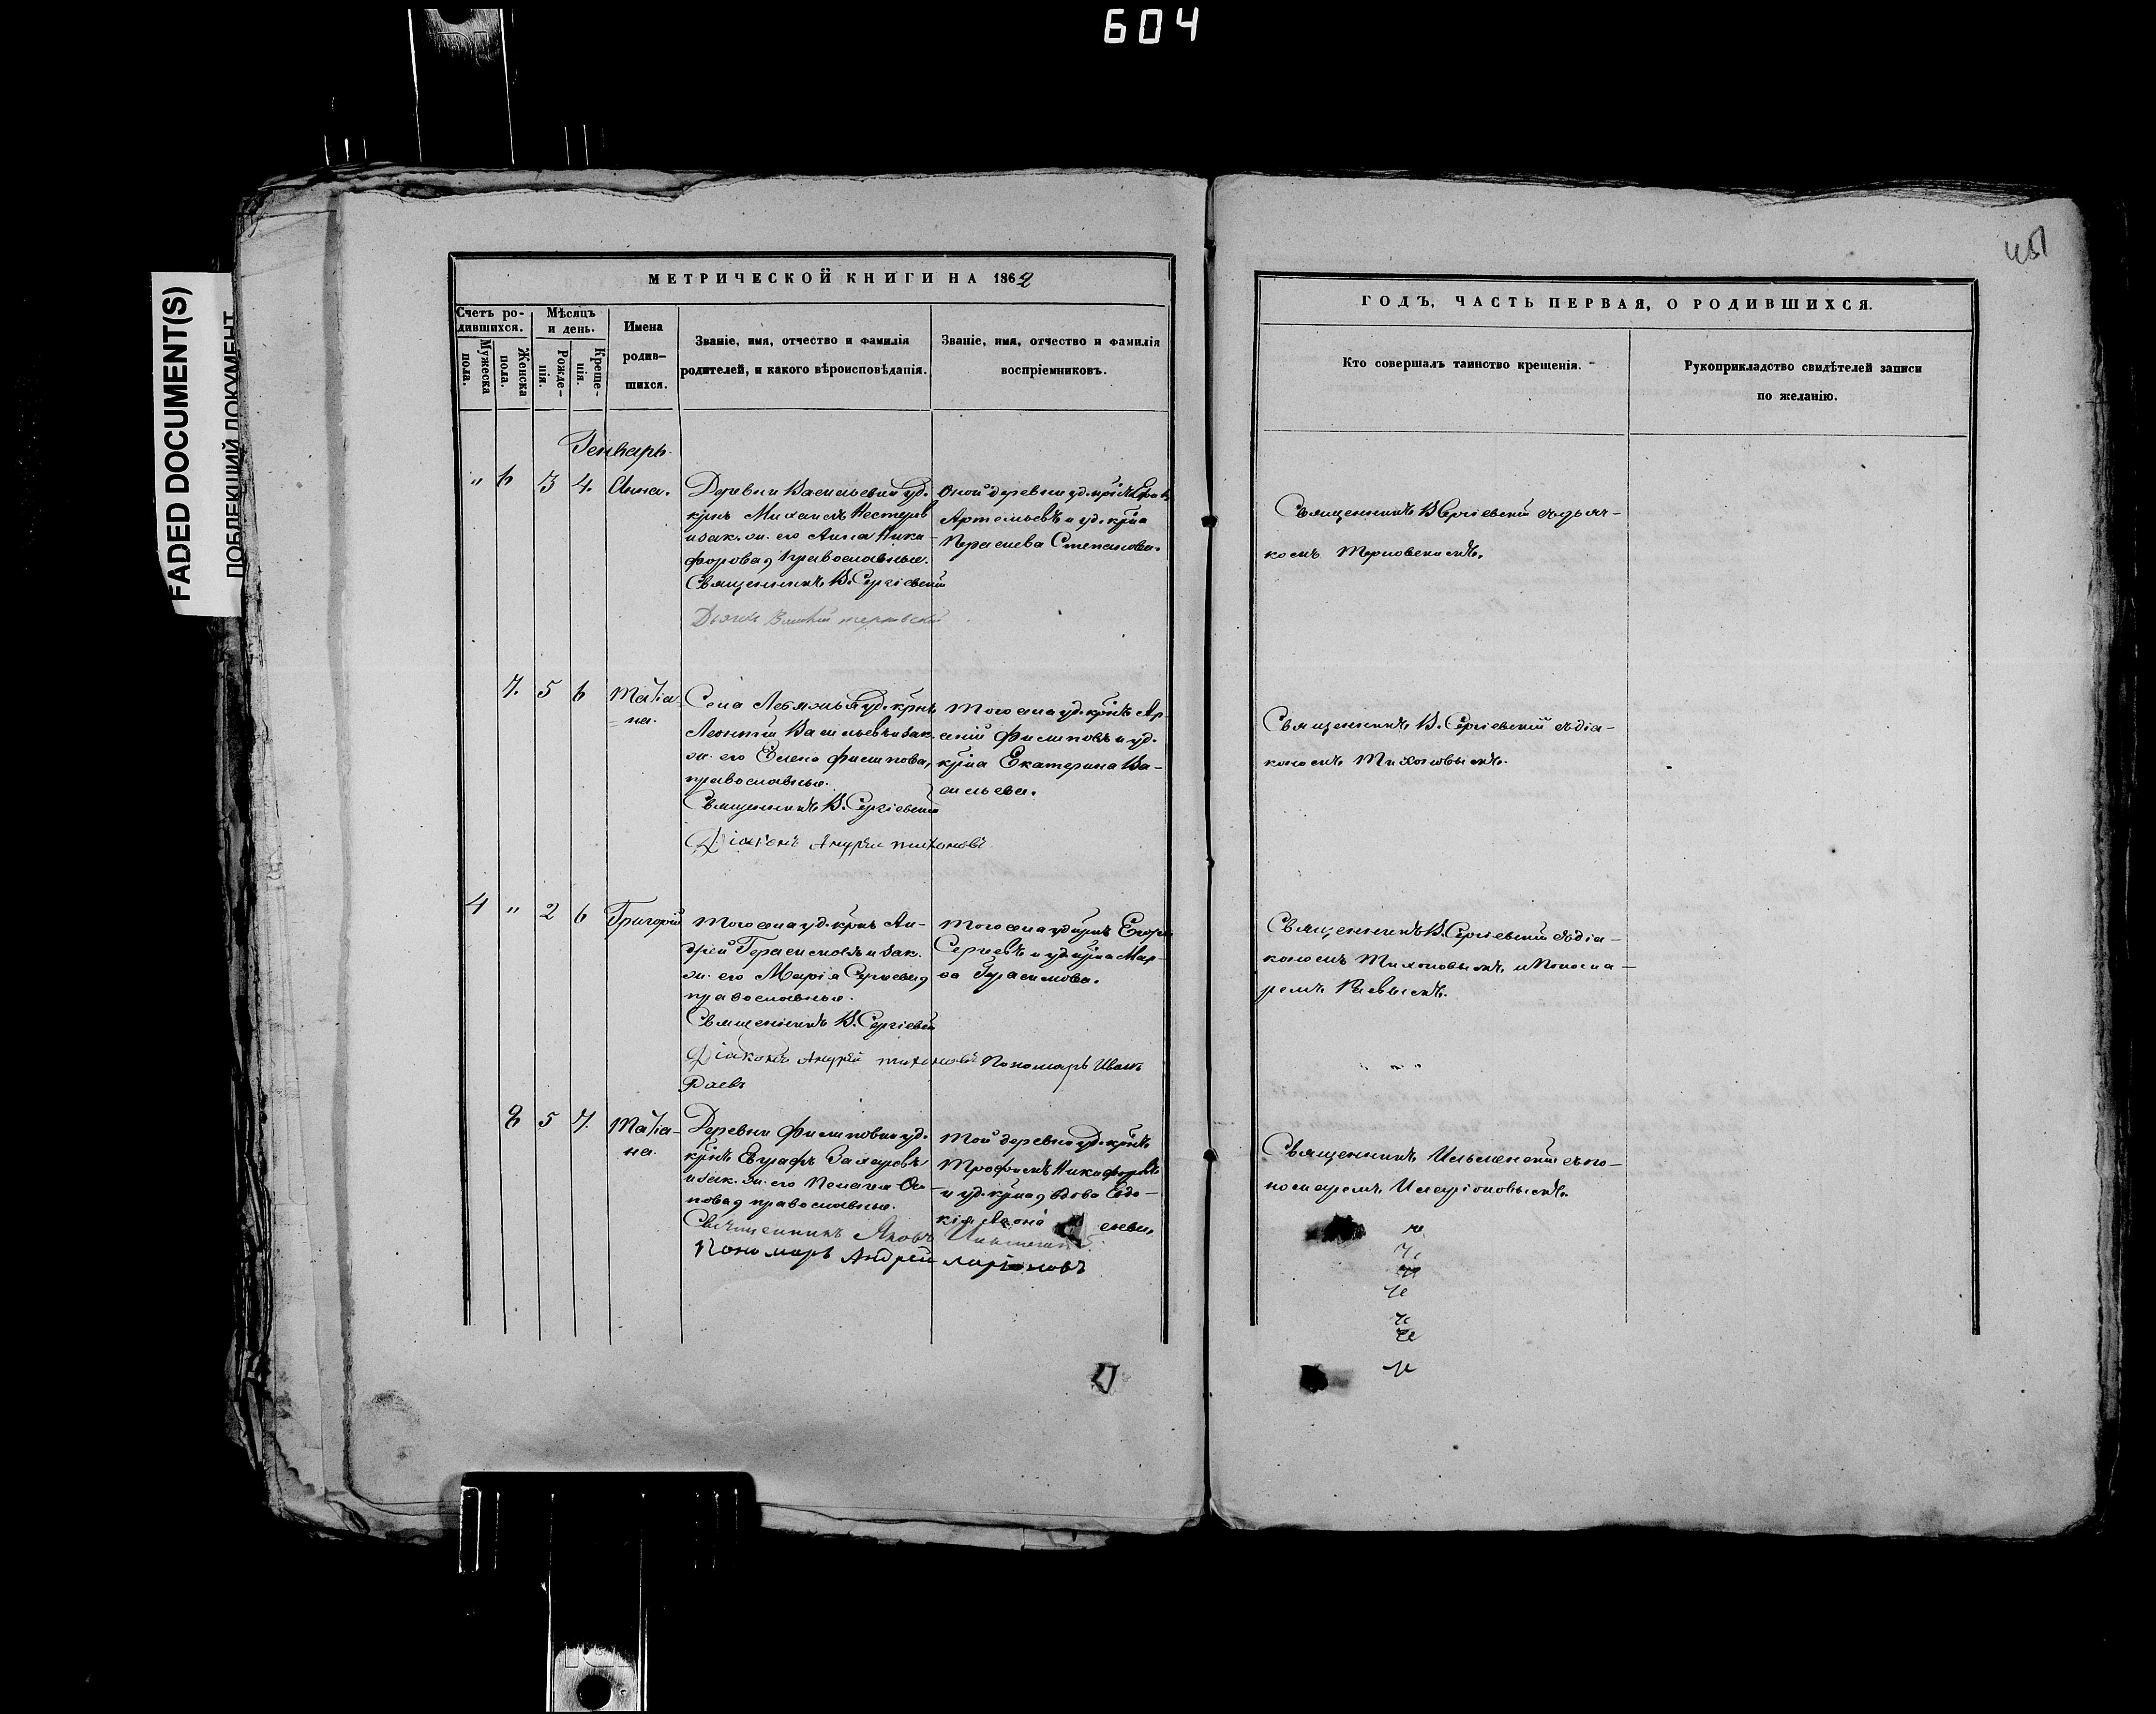 604
FADED DOCUMENT(S)
ПОБЛЕКШИЙ ДОКУМЕНТ
МЕТРИЧЕСКОЙ КНИГИ НА 1862
Счетъ ро-
дившихся.
Мужеска
пола.
Женска
пола.
Мѣсяцъ
и день.
Рожде-
нія.
Креще-
нія.
Имена
родив-
шихся.
Званіе, имя, отчество и фамилія
родителей, и какого вѣроисповѣданія.
Званіе, имя, отчество и фамилія
воспріемниковъ.
Генварь.
" 6 3 4. Анна.
Деревни Васильевки уд.
крнъ Михаилъ Нестеровъ
и зак. ж. его Анна Ники-
форова, православные.
Священникъ В. Сергіевскій
Дьячекъ терновскій
Оной деревни уд. крнъ
Артемьевъ и уд. крна
Степанова.
7. 5 6 Татіа-
на.
Села Лебяжья уд. крнъ
Леонтій Васильевъ и зак.
ж. его Елена Филипова,
православные.
Священникъ В. Сергіевскій
Діаконъ Андрей тихоновъ
Того села уд. крнъ Ар-
сеній Филиповъ и уд.
крна Екатерина Ва-
сильева.
4 " 2 6 Григорій
Того села уд. крнъ Ан-
дрей Герасимовъ и зак.
ж. его Марія Сергиева,
православные.
Священникъ В. Сергіевскій
Діаконъ Андрей тихоновъ Пономарь Иванъ
Раевъ
Того села уд. крнъ Егоръ
Сергиевъ и уд. крна Мар-
ѳа Герасимова.
8 5 7. Татіа-
на.
Деревни Филиповки уд.
крнъ Евграфъ Захаровъ
и зак. ж. его Пелагия Ос-
пова, православные.
Священникъ Яковъ Ильменскій
Пономарь Андрей ларіоновъ
Той деревни уд. крнъ
Трофимъ Никифоровъ
и уд. крна, вдова Евдо-
кія
ГОДЪ, ЧАСТЬ ПЕРВАЯ, О РОДИВШИХСЯ.
Кто совершалъ таинство крещенія.
Рукоприкладство свидѣтелей записи
по желанію.
Священникъ В. Сергіевскій съ дьяч-
комъ Терновскимъ.
Священникъ В. Сергіевскій съ діа-
кономъ Тихоновымъ.
Священникъ В. Сергіевскій съ діа-
кономъ Тихоновымъ и Понома-
ремъ Раевымъ.
Священникъ Ильменскій съ по-
номаремъ Иларіоновымъ.